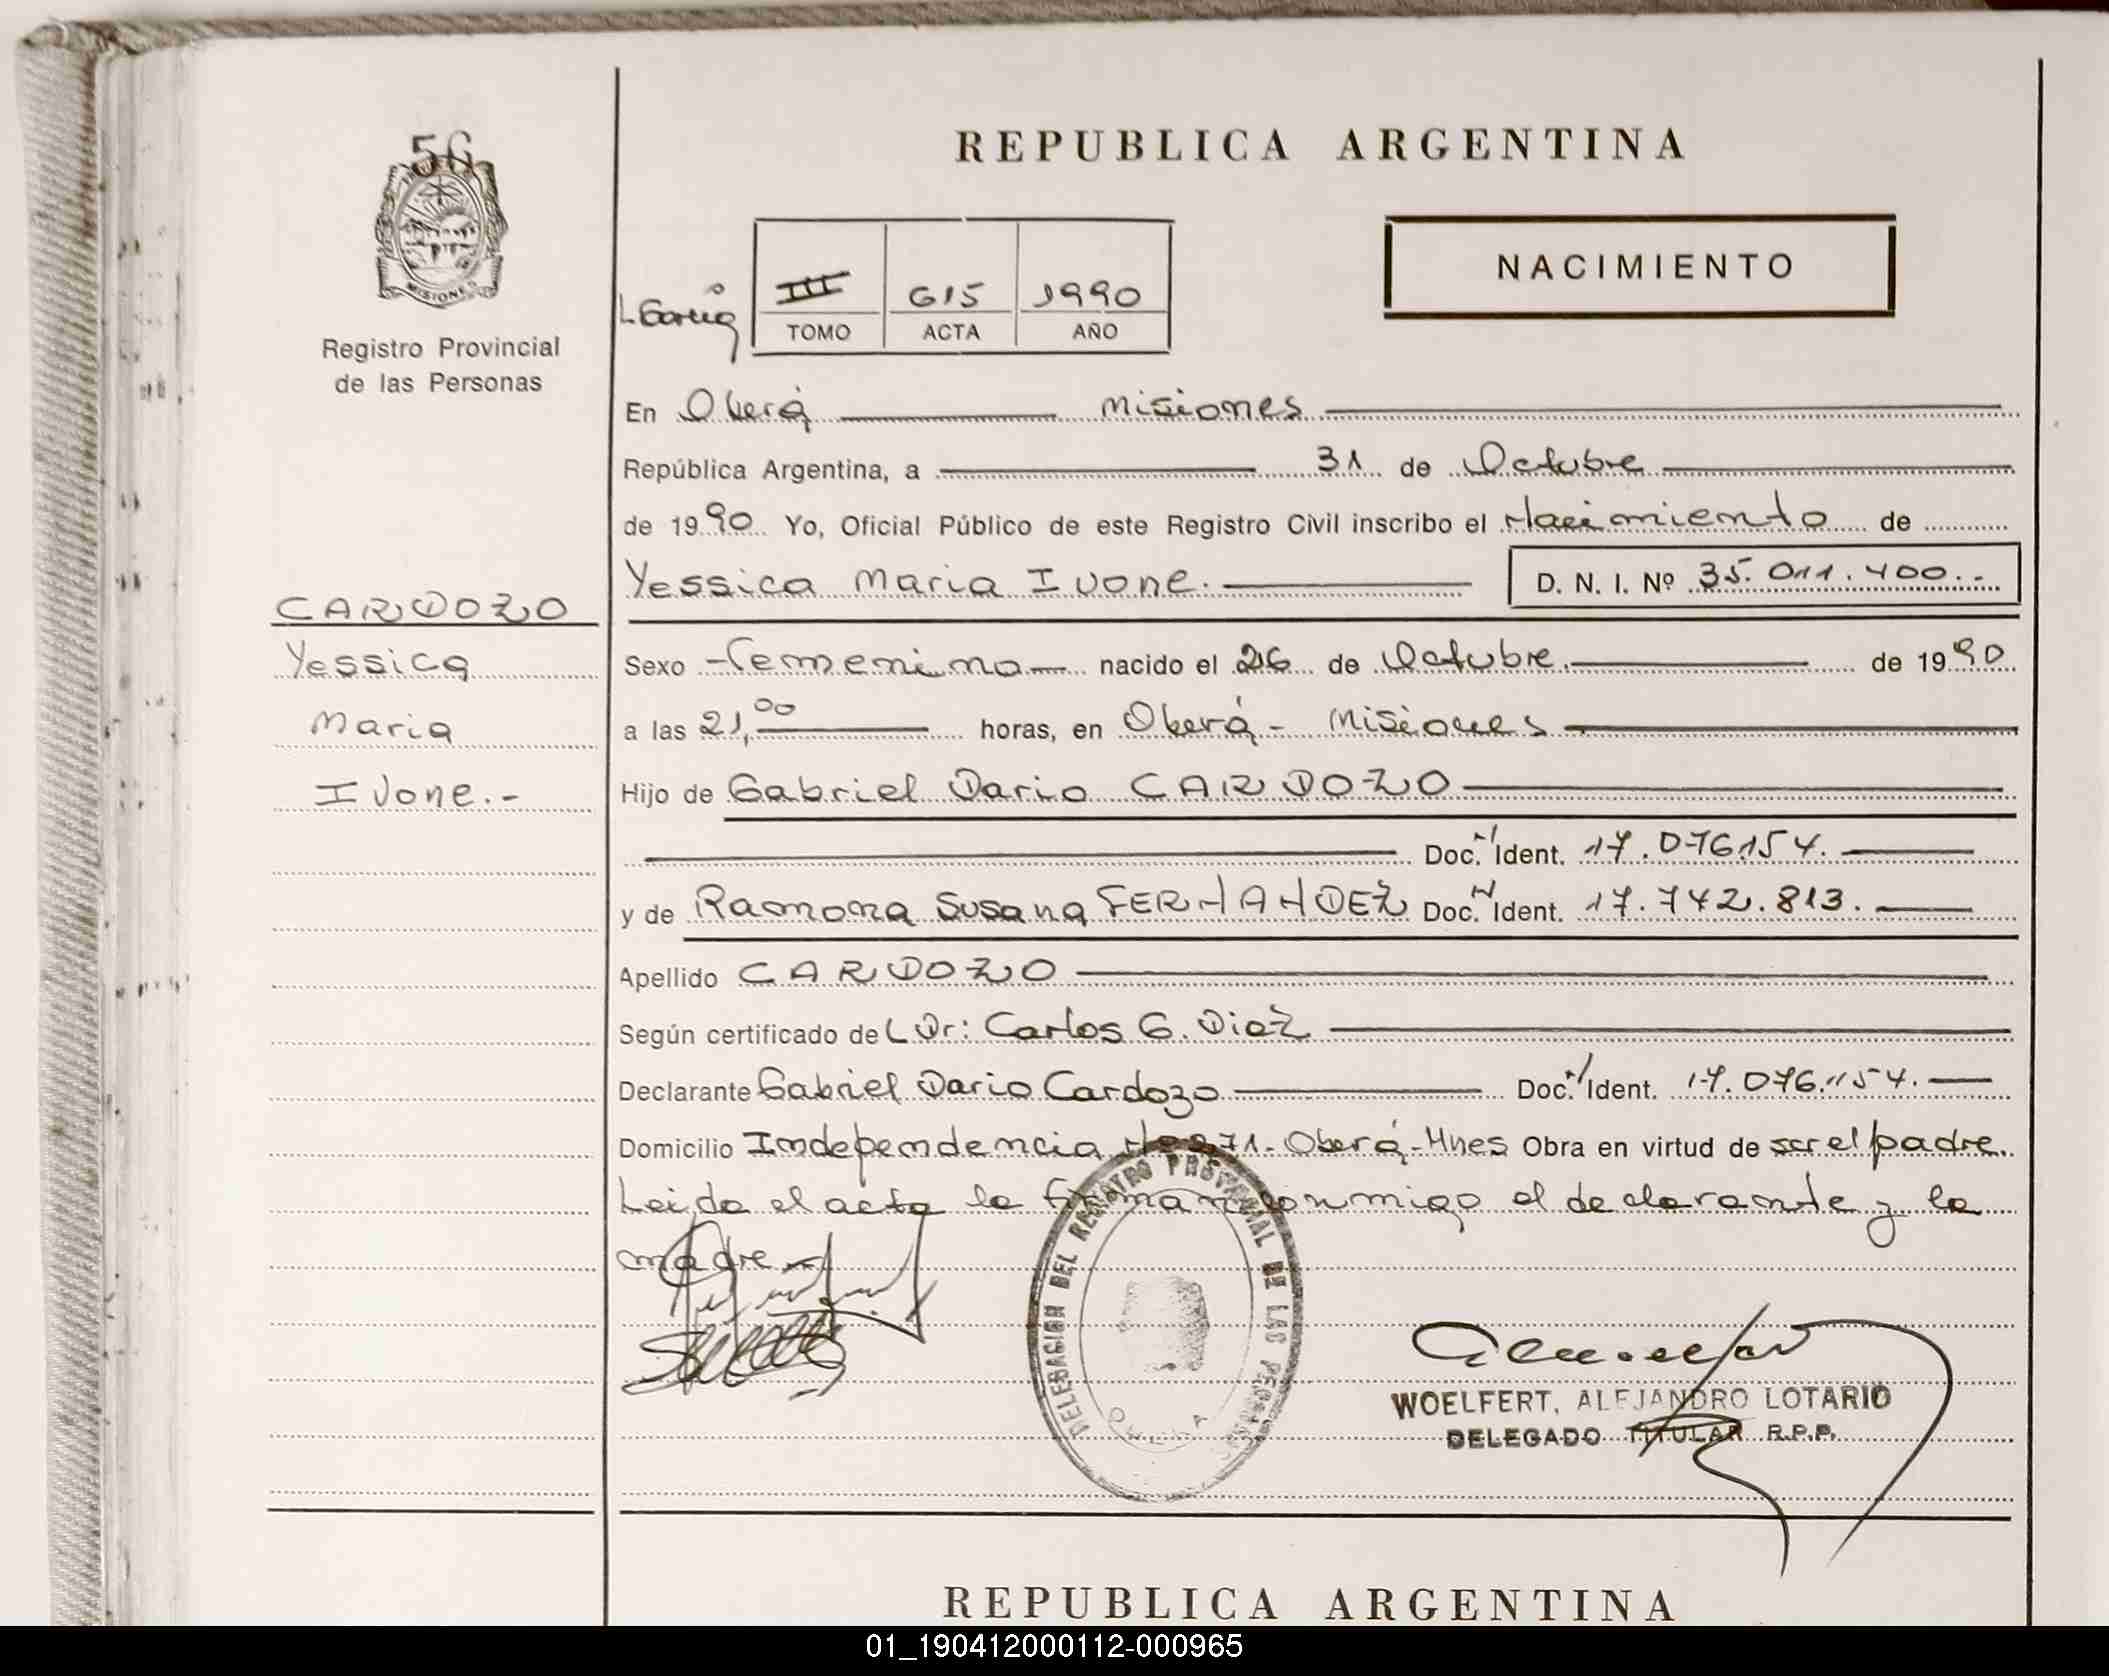 56
MISIONES
Registro Provincial
de las Personas
CARDOZO
Yessica
Maria
Ivone.-
REPUBLICA ARGENTINA
NACIMIENTO
III 615 1990
TOMO ACTA AÑO
En Oberá Misiones
República Argentina, a 31 de Octubre
de 1990 Yo, Oficial Público de este Registro Civil inscribo el Nacimiento de
Yessica Maria Ivone. D. N. I. Nº 35.011.400.-
Sexo Femenino nacido el 26 de Octubre de 1990
a las 21,00 horas, en Oberá - Misiones
Hijo de Gabriel Dario CARDOZO
Doc. Ident. 17.076.154.
y de Ramona Susana FERNANDEZ Doc. Ident. 17.742.813.
Apellido CARDOZO
Según certificado del Dr: Carlos G. Diaz
Declarante Gabriel Dario Cardozo Doc. Ident. 17.076.154.
Domicilio Independencia - Oberá - Mnes Obra en virtud de ser el padre.
Leida el acta la firman conmigo el declarante y la
madre
DELEGACION DEL REGISTRO PROVINCIAL DE LAS PERSONAS
OBERA
WOELFERT, ALEJANDRO LOTARIO
DELEGADO TITULAR R.P.P.
REPUBLICA ARGENTINA
01_190412000112-000965